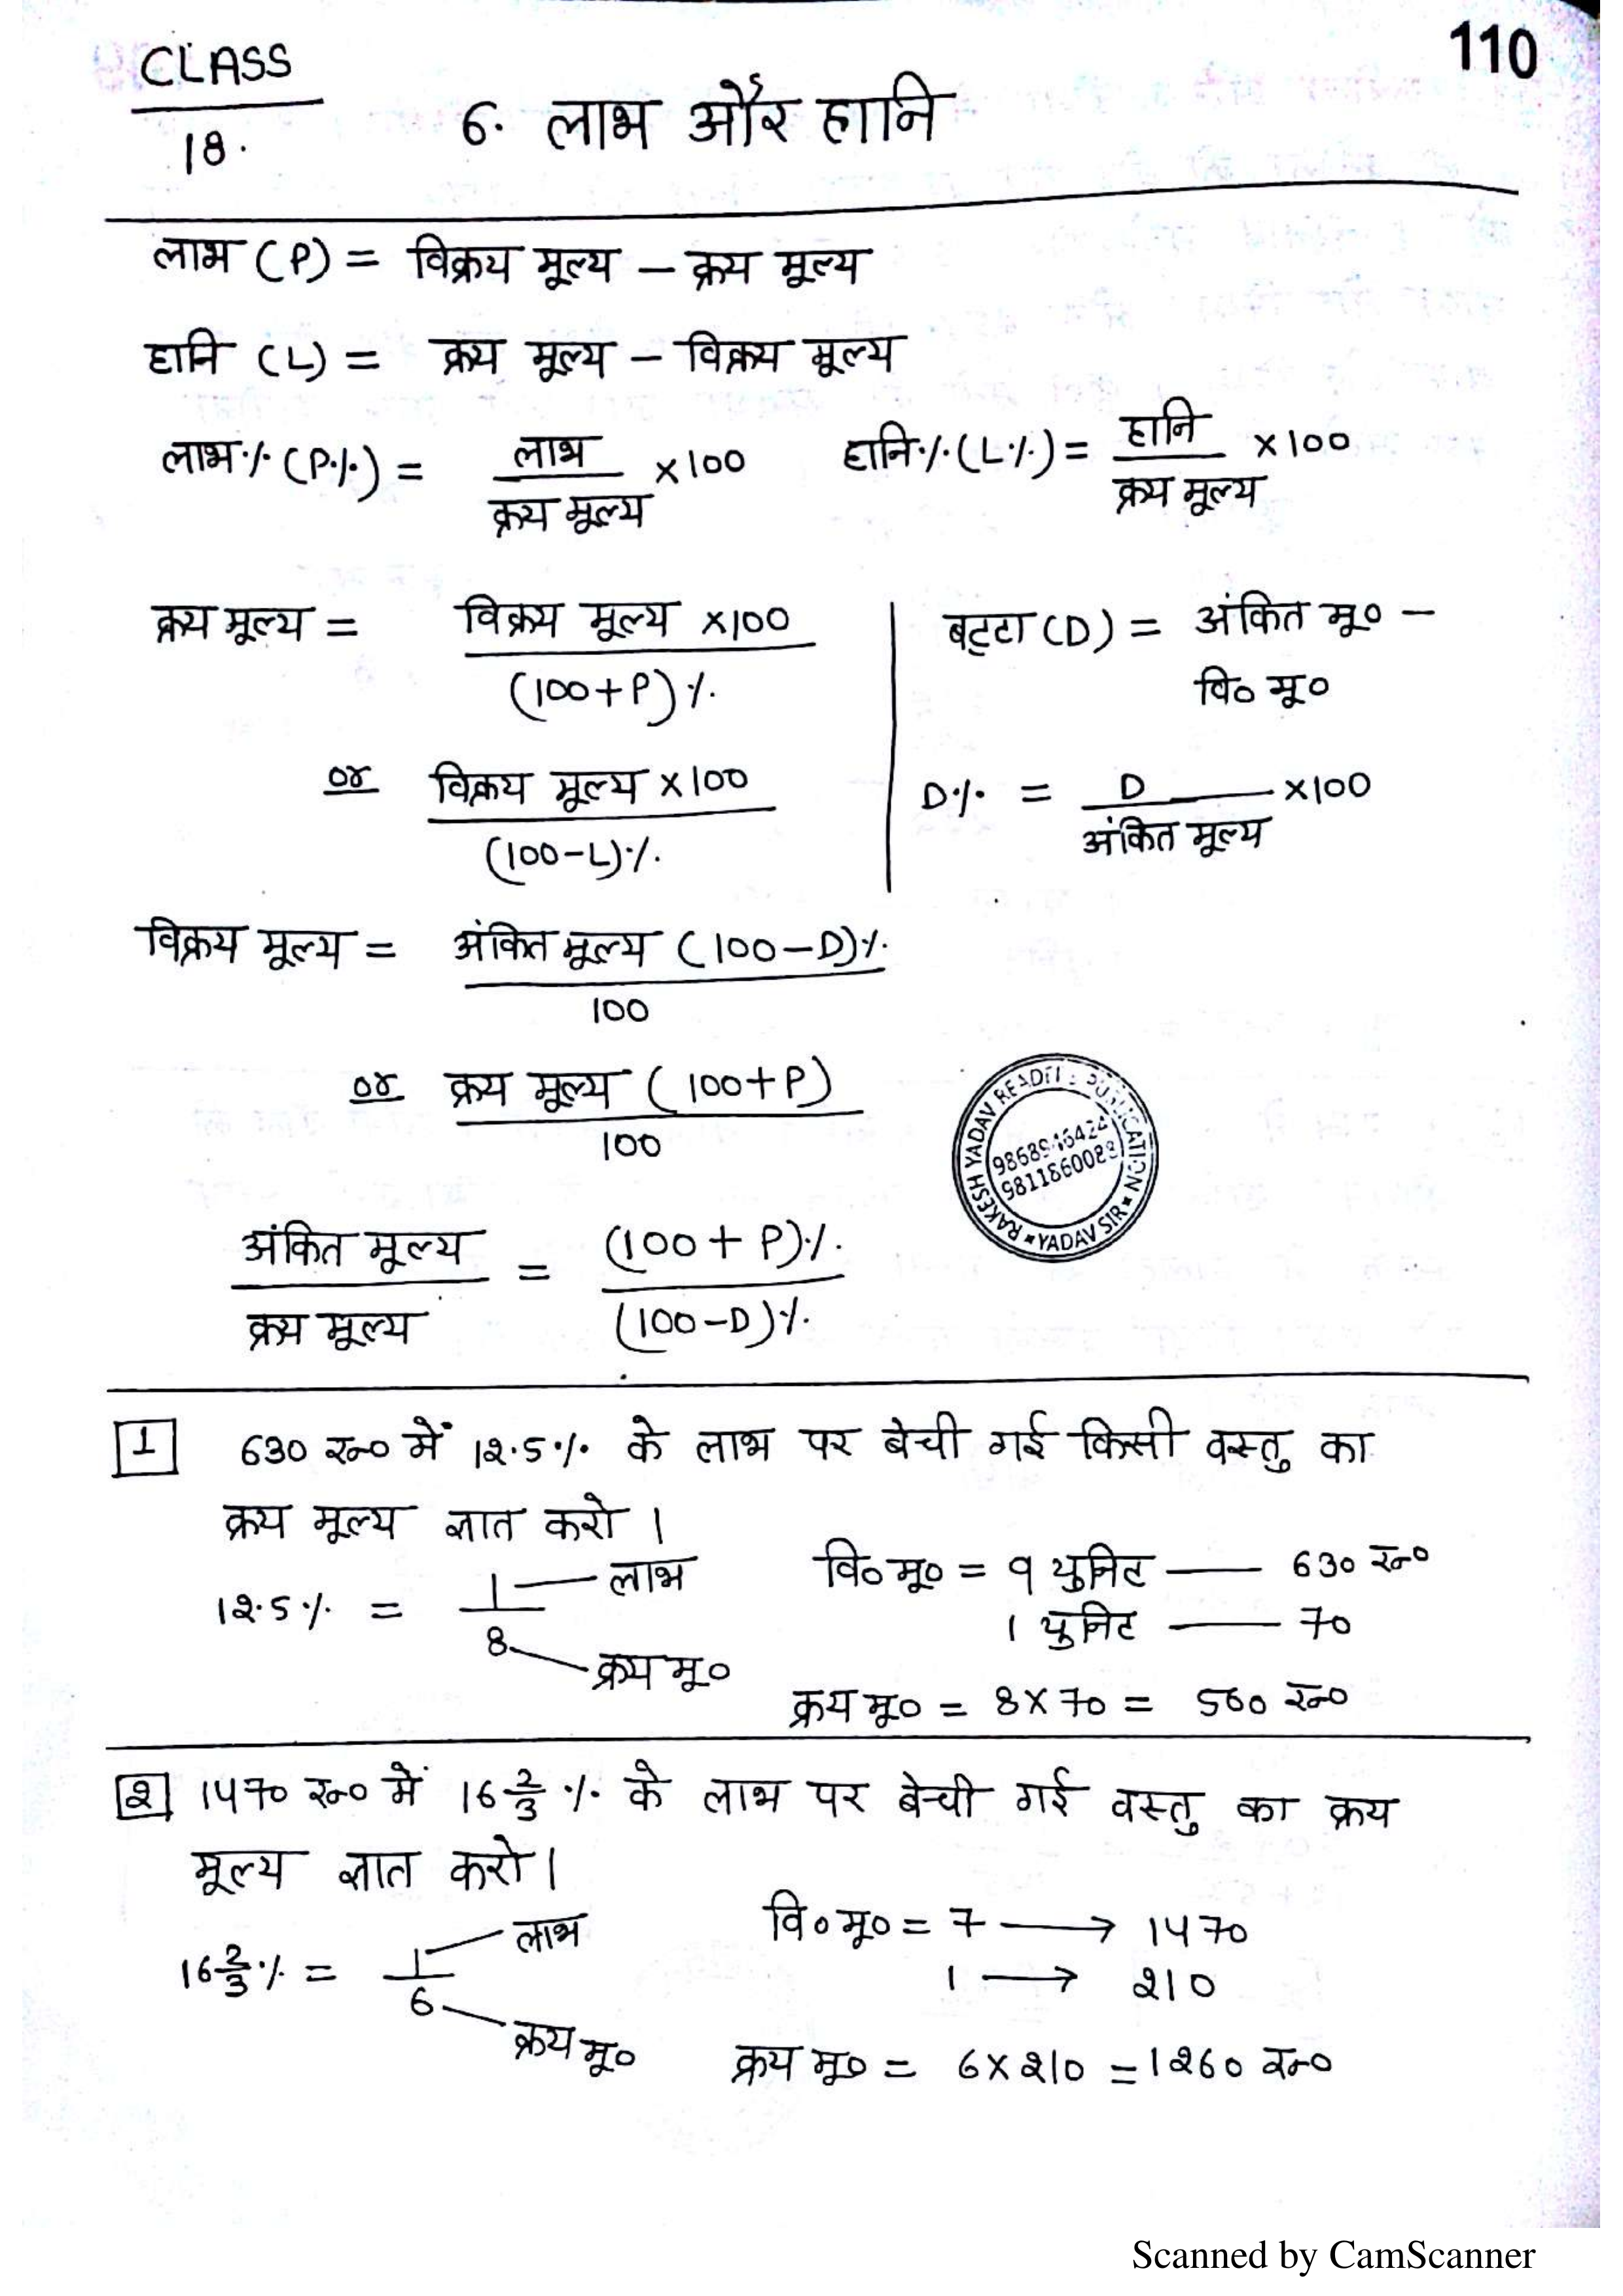 110
CLASS
18.
6. लाभ और हानि
लाभ (P) = विक्रय मूल्य – क्रय मूल्य
हानि (L) = क्रय मूल्य – विक्रय मूल्य
लाभ% (P%) = लाभ / क्रय मूल्य × 100
हानि% (L%) = हानि / क्रय मूल्य × 100
क्रय मूल्य = विक्रय मूल्य × 100 / (100+P)%
or विक्रय मूल्य × 100 / (100-L)%
बट्टा (D) = अंकित मू० –
वि० मू०
D% = D / अंकित मूल्य × 100
विक्रय मूल्य = अंकित मूल्य (100-D)% / 100
or क्रय मूल्य (100+P) / 100
RAKESH YADAV READER PUBLICATION
YADAV SIR
9811860088
अंकित मूल्य / क्रय मूल्य = (100 + P)% / (100-D)%
1 630 रु० में 12.5% के लाभ पर बेची गई किसी वस्तु का
क्रय मूल्य ज्ञात करो।
12.5% = 1 / 8
लाभ
क्रय मू०
वि० मू० = 9 युनिट — 630 रु०
1 युनिट — 70
क्रय मू० = 8 × 70 = 560 रु०
2 1470 रु० में 16 2/3 % के लाभ पर बेची गई वस्तु का क्रय
मूल्य ज्ञात करो।
16 2/3 % = 1 / 6
लाभ
क्रय मू०
वि० मू० = 7 → 1470
1 → 210
क्रय मू० = 6 × 210 = 1260 रु०
Scanned by CamScanner